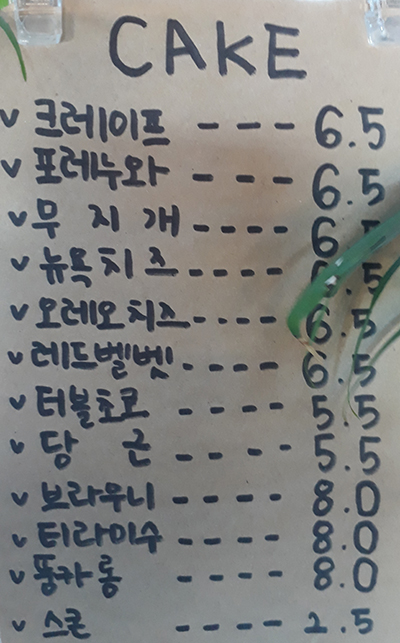 CAKE
v 크레이프 --- 6.5
v 포레누와 --- 6.5
v 무지개 ---- 6.5
v 뉴욕치즈 ---- 6.5
v 오레오치즈 ---- 6.5
v 레드벨벳 ---- 6.5
v 터블초코 ---- 5.5
v 당근 ---- 5.5
v 브라우니 ---- 8.0
v 티라미수 ---- 8.0
v 뚱카롱 ---- 8.0
v 스콘 ---- 2.5